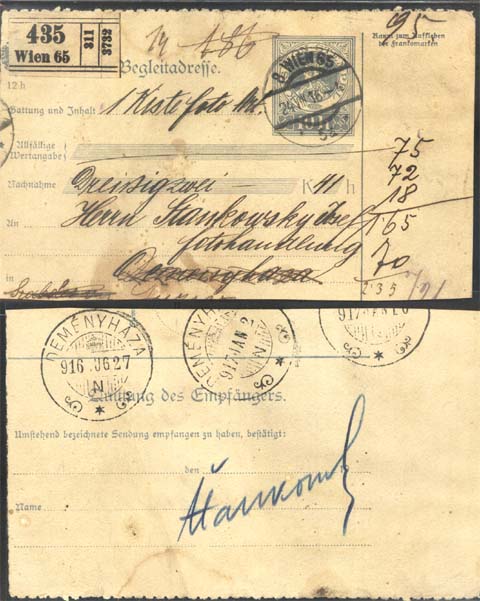 435
Wien 65
311
3732
Begleitadresse.
Raum zum Aufkleben
der Frankomarken
12 h
9 WIEN 65
Gattung und Inhalt: 1 Kiste foto
Allfällige
Wertangabe
75
Nachnahme Dreissigzwei — K 41 h
72
18
An Herrn Stankowsky Josef
1 65
fotohandlung
70
Demenyhaza
in
2 35
DEMÉNYHÁZA
916 JUG 27
N
DEMÉNYHÁZA
917 JAN 2
N
917 JAN 20
des Empfängers.
Umstehend bezeichnete Sendung empfangen zu haben, bestätigt:
den
Name